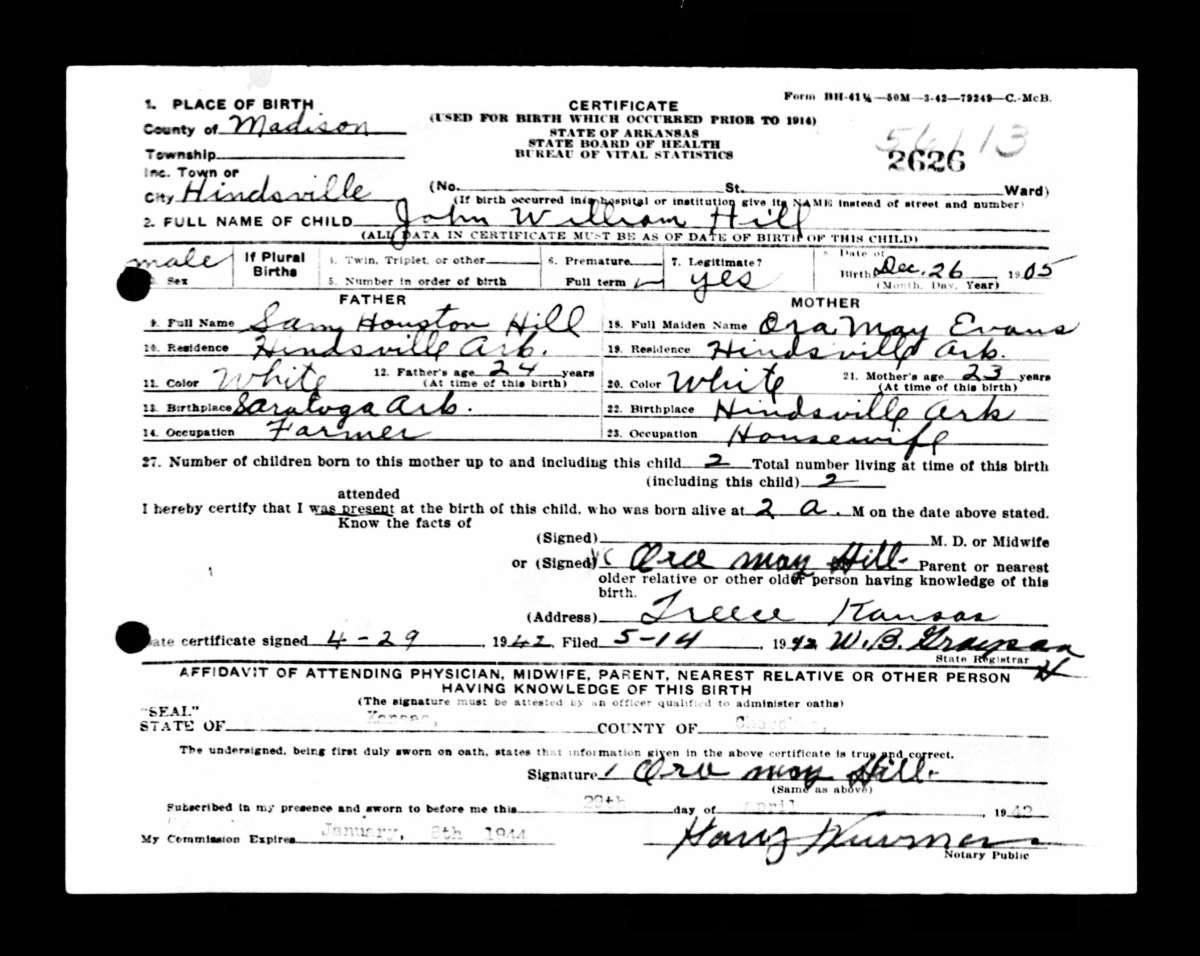 Form BH-41¼—50M—3-42—79249—C.-McB.
1. PLACE OF BIRTH
CERTIFICATE
County of Madison
(USED FOR BIRTH WHICH OCCURRED PRIOR TO 1914)
STATE OF ARKANSAS
STATE BOARD OF HEALTH
BUREAU OF VITAL STATISTICS
2626
Township
Inc. Town or
City Hindsville
(No. St. Ward)
(If birth occurred in a hospital or institution give its NAME instead of street and number)
2. FULL NAME OF CHILD John William Hill
(ALL DATA IN CERTIFICATE MUST BE AS OF DATE OF BIRTH OF THIS CHILD)
male
Sex
If Plural Births
4. Twin, Triplet, or other
5. Number in order of birth
6. Premature
Full term ✓
7. Legitimate?
yes
8. Date of
Birth Dec. 26 1905
(Month, Day, Year)
FATHER
MOTHER
9. Full Name Sam Houston Hill
18. Full Maiden Name Ora May Evans
10. Residence Hindsville Ark.
19. Residence Hindsville Ark.
11. Color White 12. Father's age 24 years
(At time of this birth)
20. Color White 21. Mother's age 23 years
(At time of this birth)
13. Birthplace Saratoga Ark.
22. Birthplace Hindsville Ark
14. Occupation Farmer
23. Occupation Housewife
27. Number of children born to this mother up to and including this child 2 Total number living at time of this birth
(including this child) 2
attended
I hereby certify that I was present at the birth of this child, who was born alive at 2 a. M on the date above stated.
Know the facts of
(Signed) M. D. or Midwife
or (Signed) Ora may Hill Parent or nearest
older relative or other older person having knowledge of this
birth.
(Address) Treece Kansas
Date certificate signed 4-29, 1942, Filed 5-14, 1942 W. B. Grayson
State Registrar
H
AFFIDAVIT OF ATTENDING PHYSICIAN, MIDWIFE, PARENT, NEAREST RELATIVE OR OTHER PERSON
HAVING KNOWLEDGE OF THIS BIRTH
(The signature must be attested by an officer qualified to administer oaths)
"SEAL"
STATE OF Kansas, COUNTY OF Cherokee,
The undersigned, being first duly sworn on oath, states that information given in the above certificate is true and correct.
Signature Ora may Hill
(Same as above)
Subscribed in my presence and sworn to before me this 29th day of April, 1942
My Commission Expires January, 8th 1944
Notary Public